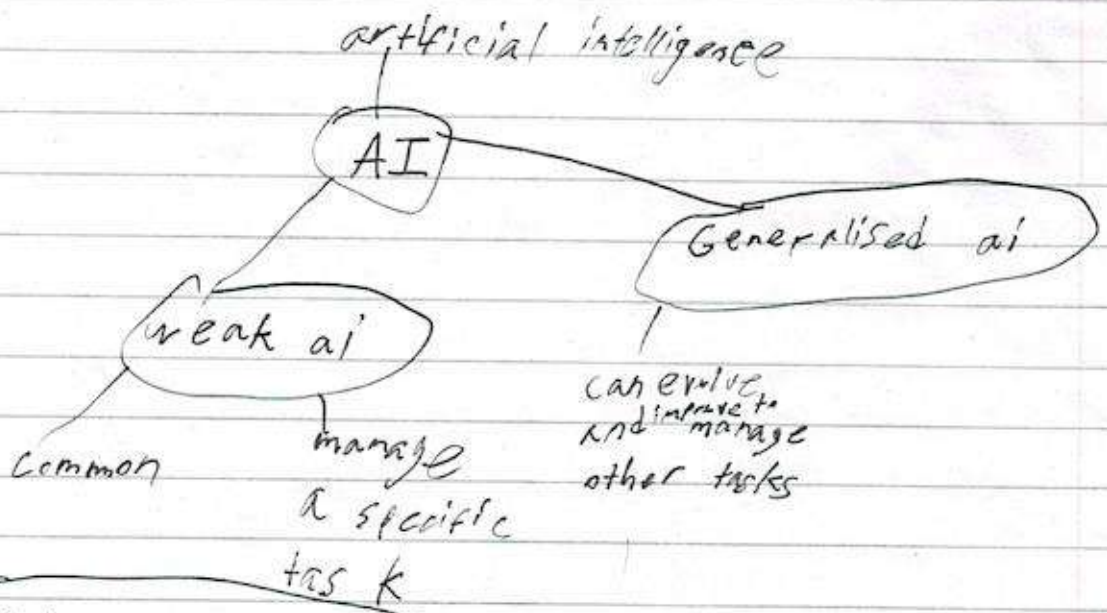 artificial intelligence
AI
Generalised ai
weak ai
can evolve
and improve to
manage
other tasks
common
manage
a specific
task